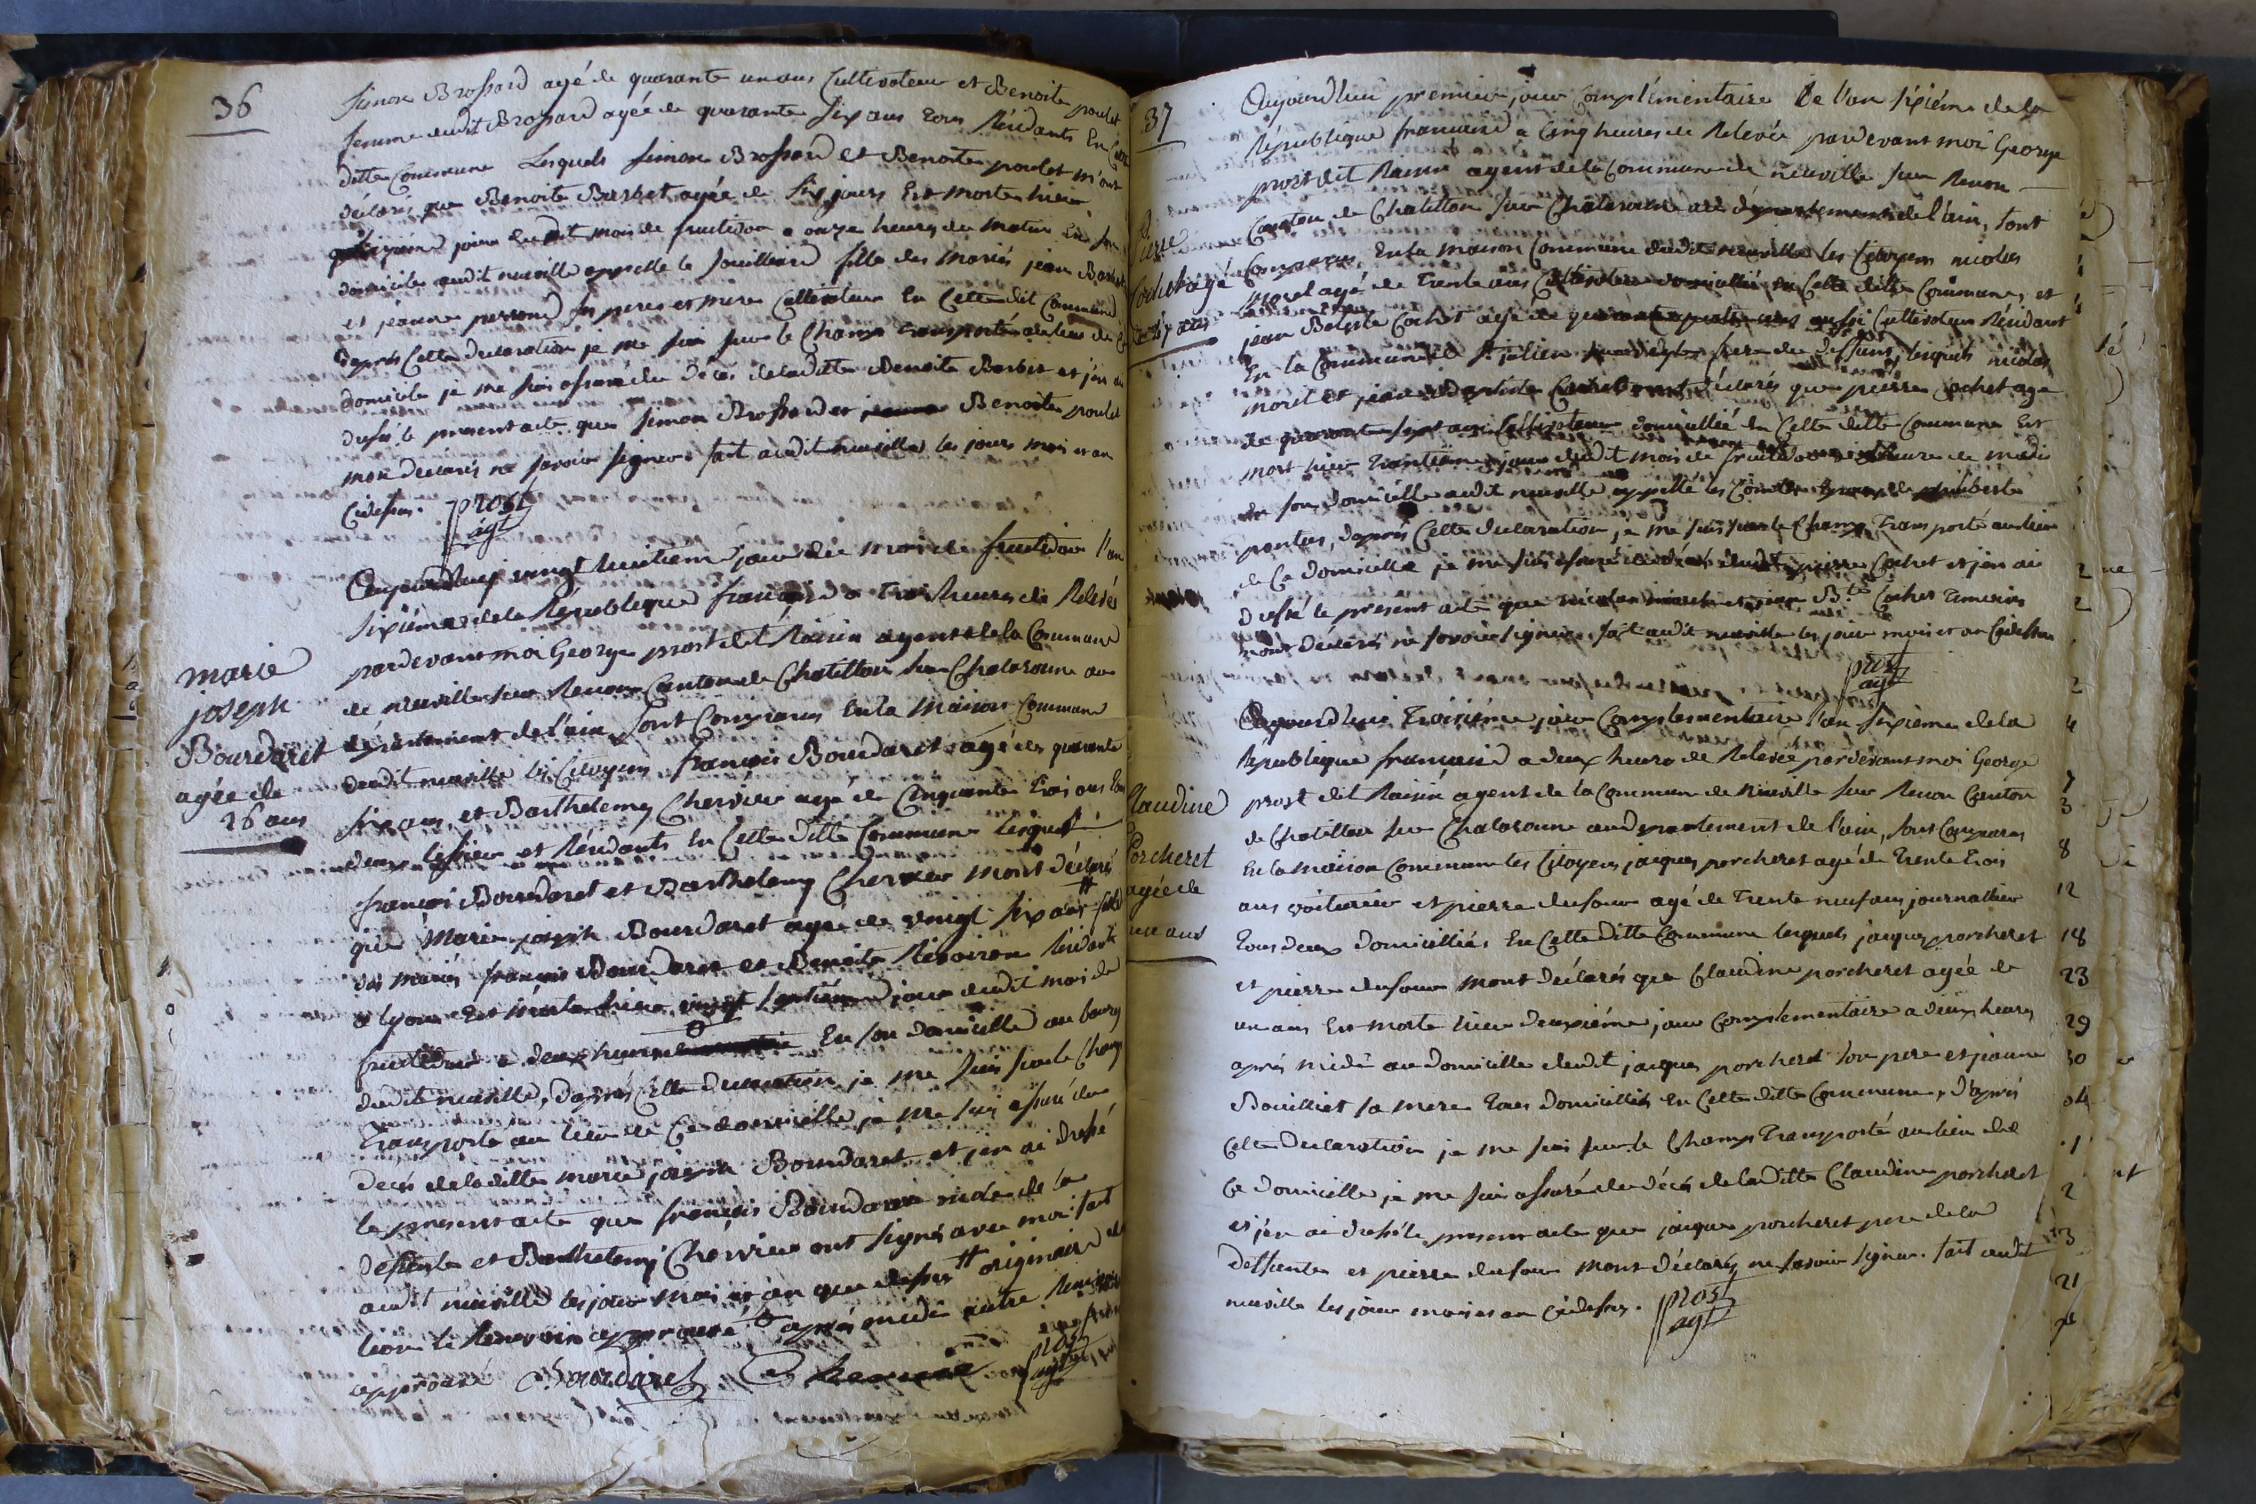 36
Simon Brossard agé de quarante un ans Cultivateur et Benoite poulet
femme dudit Brossard agée de quarante six ans tous Résidants En Cette
ditte Commune Lesquels Simon Brossard et Benoite poulet m'ont
déclarés que Benoite Barbet agée de six jours Est morte hier
jour dudit mois de fructidor a onze heures du matin En son
domicile audit neuville appellé le Souilliard fille des mariés jean Barbet
et jeanne personne ses peres et mere Cultivateur En Cette dit Commune
Daprés Cette declaration je me suis sur le Champ transporté au lieu de Ce
domicile je me suis assuré du Décés de laditte Benoite Barbet et j'en ai
dressé le present acte que Simon Brossard et Benoite poulet
mon declarés ne savoir signer. fait audit neuville les jours mois et an
Cidessus. prost
agt
Aujourdhuy vingt huitieme jour du mois de fructidor l'an
sixiéme de la République francaise a trois heures de Relevés
pardevant moi George prost dit Raisin agent de la Commune
de neuville sur Renom Canton de Chatillon sur Chalaronne au
département de l'ain, sont Comparus En la maison Commune
dudit neuville les Citoyens françois Bourdaret agé de quarante
six ans, et Barthelemy Chervier agé de Cinquante trois ans tous
deux et Résidants En Cette ditte Commune Lesquels
françois Bourdaret et Barthelemy Chervier mont déclaré
que Marie joseph Bourdaret agee de vingt six ans # fille
des mariés françois Bourdaret et Benoite Résidants
a lyon Est morte hier vingt septiéme jour dudit mois de
fructidor a deux heures En son domicille au bourg
dudit neuville, daprés Cette declaration je me suis sur le Champ
transporté au lieu de Ce domicille, je me suis assuré du
décés de laditte marie joseph Bourdaret et j'en ai dressé
le present acte que françois Bourdaret de la
deffunte et Barthelemy Chervier ont signés avec moi fait
audit neuville les jour mois et an que dessus # originaire de
lion le Renvoi approuvé après midi autre Renvoi
approuvé Bourdaret Chervier prost
agt
marie
joseph
Bourdaret
agée de
26 ans
37
Aujourdhui premier jour Complémentaire De l'an sixiéme de la
République francaise a Cinq heures de Relevée pardevant moi George
prost dit Raisin agent de la Commune de neuville sur Renon
Canton de Chatillon sur Chalaronne au département de l'ain, sont
Comparus En la maison Commune dudit neuville les Citoyens nicolas
morel agé de trente ans Cultivateur domicillié En Cette ditte Commune, et
jean Batiste Cochet agé de quarante quatre ans aussi Cultivateur Résidant
En la Commune de St julien sur Veyle frere du deffunt, lesquels nicolas
morel et jean Baptiste Cochet mont déclarés que pierre Cochet age
de quarante sept ans Cultivateur domicillié En Cette ditte Commune Est
mort hier trentieme jour dudit mois de fructidor heure de midi
En son domicille audit neuville appellé les
daprés Cette declaration je me suis sur le Champ transporté au lieu
de Ce domicille je me suis assuré du décés dudit pierre Cochet et j'en ai
dressé le present acte que nicolas morel et jean Bte Cochet temoins
mont déclarés ne savoir signer. fait audit neuville les jour mois et an Cidessus
prost
agt
Cochet agé
Aujourdhui troisiéme jour Complementaire l'an sixieme de la
République francaise a deux heure de Relevée pardevant moi George
prost dit Raisin agent de la Commune de Neuville sur Renon Canton
de Chatillon sur Chalaronne au département de l'ain, sont Comparus
En la maison Commune les Citoyens jacques porcheret agé de trente trois
ans voiturier et pierre dufour agé de trente neuf ans journallier
tous deux domicilliés En Cette ditte Commune lesquels jacques porcheret
et pierre dufour mont déclarés que Claudine porcheret agée de
un ans Est morte hier deuxiéme jour Complementaire a deux heures
aprés midi au domicille dudit jacques porcheret son pere et jeanne
Bouilliet sa mere tous domicilliés En Cette ditte Commune, d'aprés
Cette declaration je me suis sur le Champ transporté au lieu de
Ce domicille je me suis assuré du décés de laditte Claudine porcheret
et j'en ai dressé le present acte que jacques porcheret pere de la
deffunte et pierre dufour mont déclarés ne savoir signer. fait audit
neuville les jour mois et an cidessus. prost
agt
Claudine
Porcheret
agée de
un ans
2
2
2
4
7
3
8
12
18
23
29
30
2
3
21